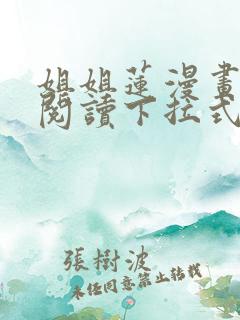 姐姐蓮漫畫
閱讀下拉式
張樹波
未经同意禁止转载